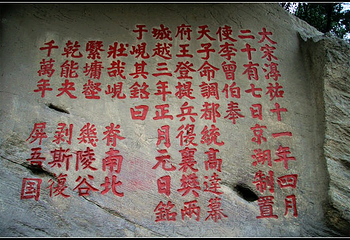 大宋淳祐十一年四月
二十有七日京湖制置
使李曾伯奉
天子命調都統高達幕
府王登提兵復襄樊兩
城越三年正月元日銘
于峴其銘曰
壯哉峴 脊南北
繄墉壑 幾陵谷
乾能夬 剝斯復
千萬年 屏吾國